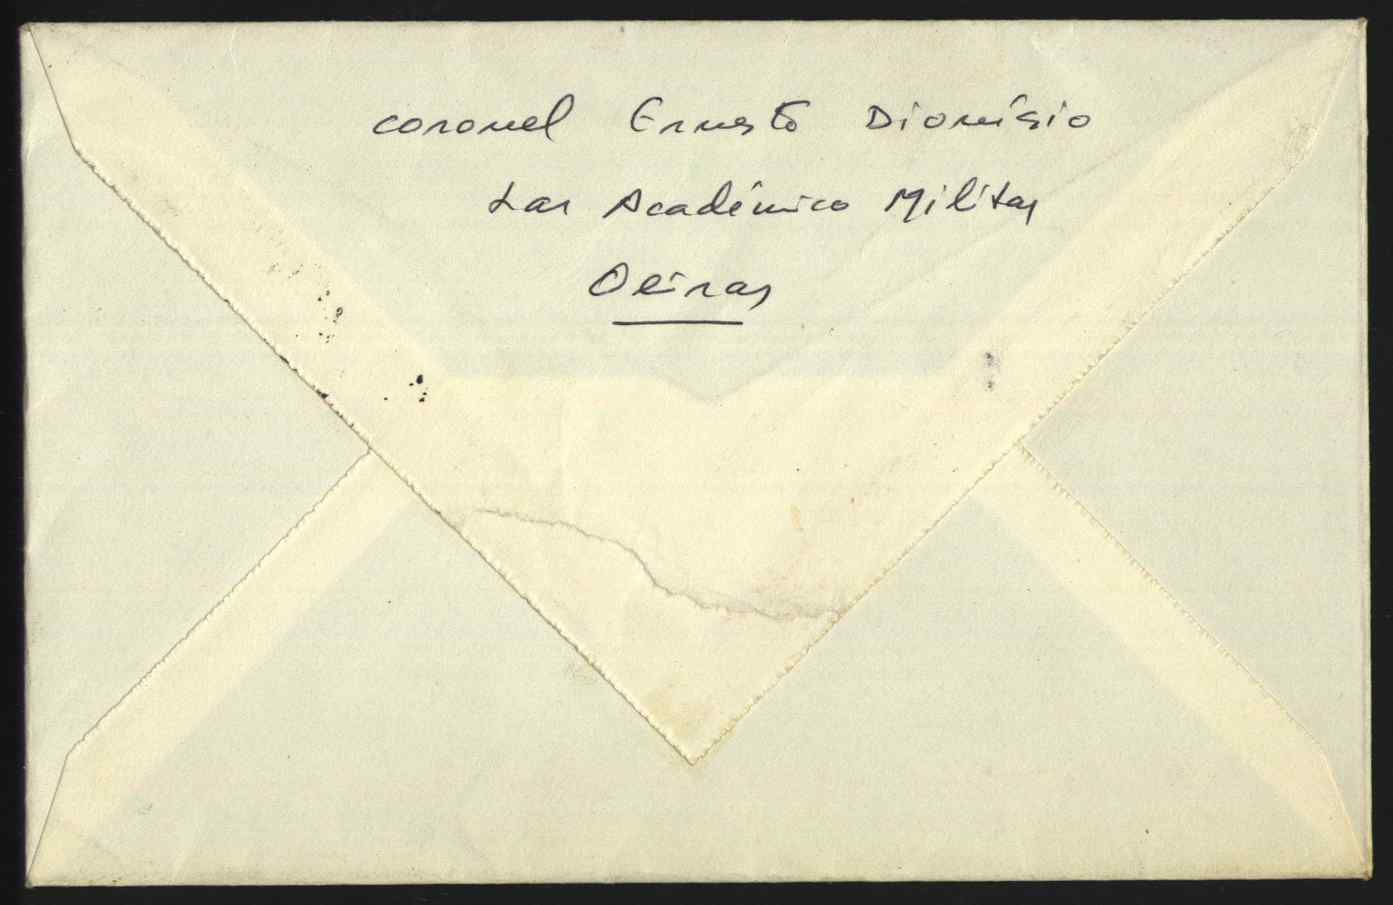 coronel Ernesto Dionísio
Lar Académico Militar
Oeiras